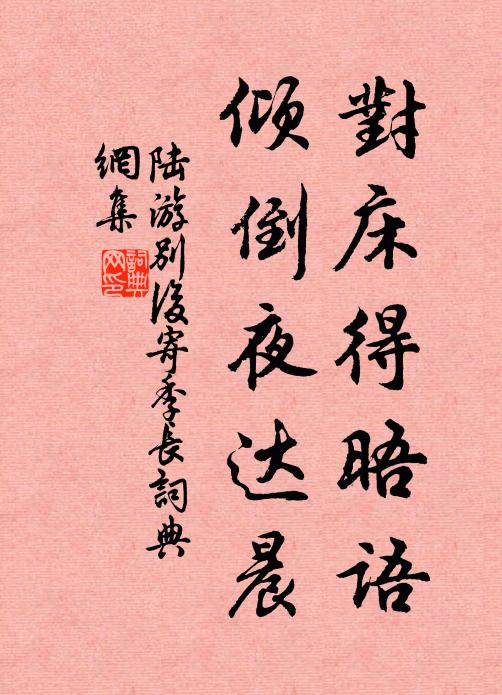 對床得晤语
倾倒夜达晨
陆游别後寄季长詞典
網集
詞典网印